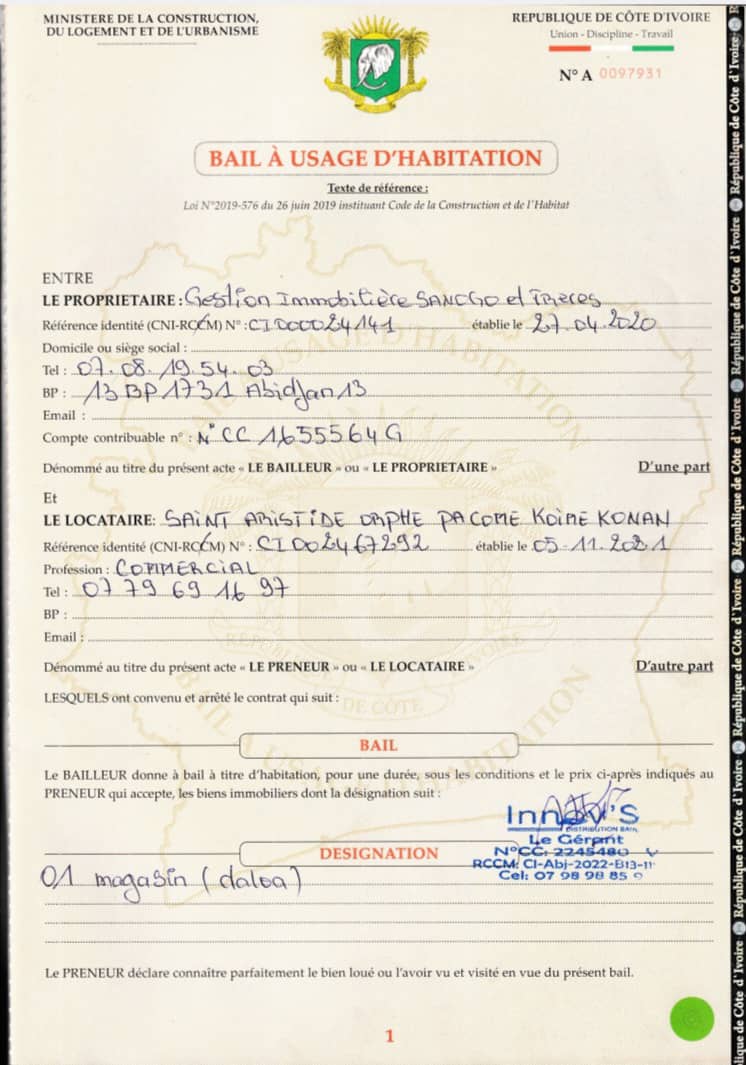 MINISTERE DE LA CONSTRUCTION,
DU LOGEMENT ET DE L'URBANISME
REPUBLIQUE DE CÔTE D'IVOIRE
Union - Discipline - Travail
N° A 0097931
BAIL À USAGE D'HABITATION
Texte de référence :
Loi N°2019-576 du 26 juin 2019 instituant Code de la Construction et de l'Habitat
ENTRE
LE PROPRIETAIRE : Gestion Immobilière SANOGO et Frères
Référence identité (CNI-RCCM) N° : CI000024141 établie le 27.04.2020
Domicile ou siège social :
Tel : 07.08.19.54.03
BP : 13 BP 1731 Abidjan 13
Email :
Compte contribuable n° : N° CC 1655564 G
Dénommé au titre du présent acte « LE BAILLEUR » ou « LE PROPRIETAIRE » D'une part
Et
LE LOCATAIRE: SAINT ARISTIDE ORPHE PACOME KOIME KONAN
Référence identité (CNI-RCCM) N° : CI002467292 établie le 05-11-2021
Profession : COMMERCIAL
Tel : 07 79 69 16 97
BP :
Email :
Dénommé au titre du présent acte « LE PRENEUR » ou « LE LOCATAIRE » D'autre part
LESQUELS ont convenu et arrêté le contrat qui suit :
BAIL
Le BAILLEUR donne à bail à titre d'habitation, pour une durée, sous les conditions et le prix ci-après indiqués au
PRENEUR qui accepte, les biens immobiliers dont la désignation suit :
Innov'S
DISTRIBUTION
Le Gérant
N°CC: 2245480
RCCM: CI-Abj-2022-B13-11
Cel: 07 98 98 85 9
DESIGNATION
01 magasin (daloa)
Le PRENEUR déclare connaître parfaitement le bien loué ou l'avoir vu et visité en vue du présent bail.
1
République de Côte d'Ivoire
BAIL A USAGE D'HABITATION
REPUBLIQUE DE CÔTE D'IVOIRE